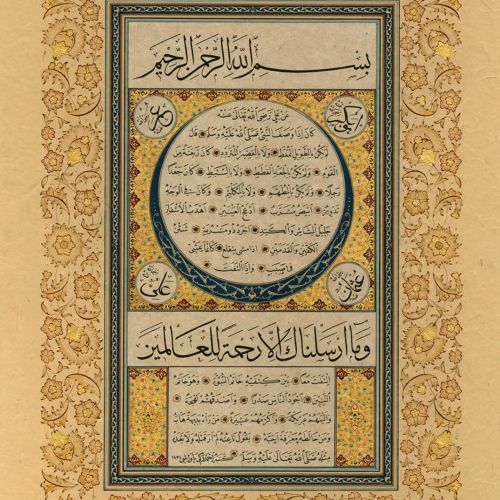 بسم الله الرحمن الرحيم
عمر
عن علي رضي الله تعالى عنه
كان اذا وصف النبي صلى الله عليه وسلم قال
لم يكن بالطويل الممغط ولا بالقصير المتردد كان ربعة من
القوم ولم يكن بالجعد القطط ولا بالسبط كان جعدا
رجلا ولم يكن بالمطهم ولا بالمكلثم وكان في الوجه
تدوير ابيض مشرب ادعج العينين اهدب الاشفار
جليل المشاش والكتد اجرد ذو مسربة شثن
الكفين والقدمين اذا مشى يتقلع كانما يمشي
في صبب واذا التفت
عثمان
علي
وما ارسلناك الا رحمة للعالمين
التفت معا بين كتفيه خاتم النبوة وهو خاتم
النبيين اجود الناس صدرا واصدقهم لهجة
والينهم عريكة واكرمهم عشيرة من رآه بديهة هابه
ومن خالطه معرفة احبه يقول ناعته لم ار قبله ولا بعده
مثله صلى الله تعالى عليه وسلم